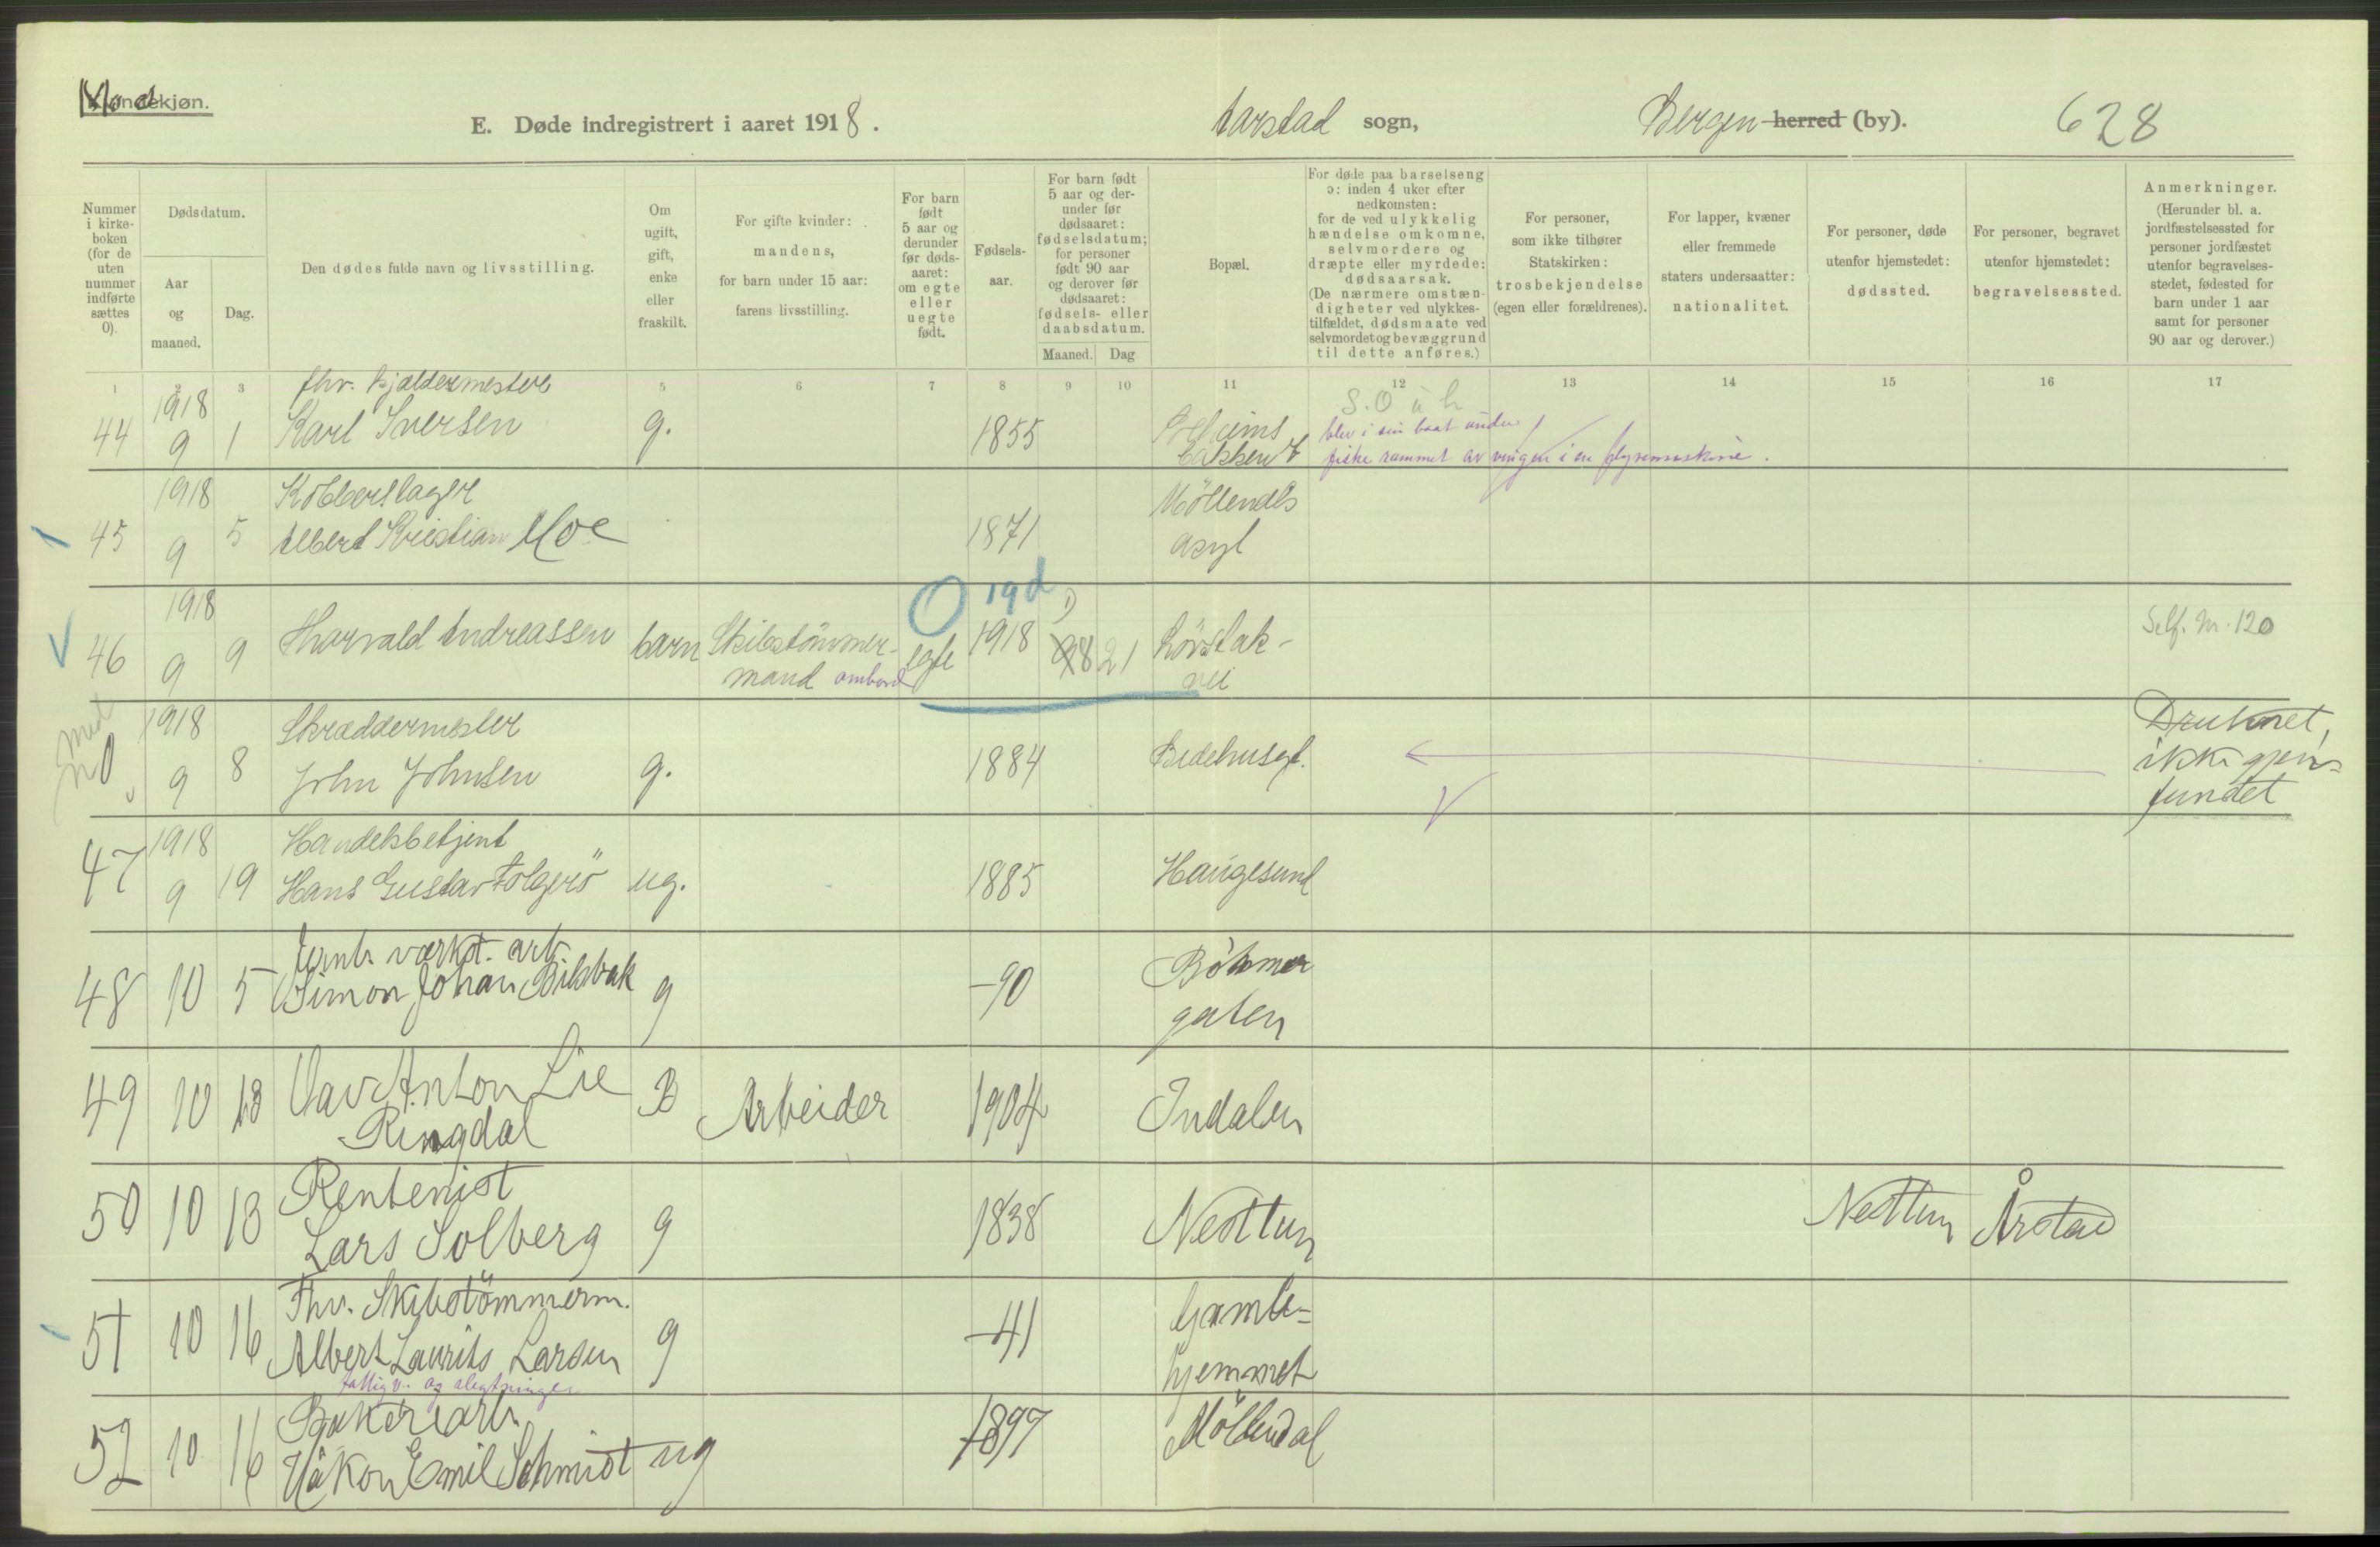 Kvindekjøn. Mand
E. Døde indregistrert i aaret 1918.
Aarstad sogn,
Bergen herred (by).
628
Nummer i kirke-boken (for de uten nummer indførte sættes 0).
Dødsdatum.
Aar og maaned.
Dag.
Den dødes fulde navn og livsstilling.
Om ugift, gift, enke eller fraskilt.
For gifte kvinder: mandens, for barn under 15 aar: farens livsstilling.
For barn født 5 aar og derunder før døds-aaret: om egte eller uegte født.
Fødsels-aar.
For barn født 5 aar og der-under før dødsaaret: fødselsdatum; for personer født 90 aar og derover før dødsaaret: fødsels- eller daabsdatum.
Maaned. Dag
Bopæl.
For døde paa barselseng ɔ: inden 4 uker efter nedkomsten: for de ved ulykkelig hændelse omkomne, selvmordere og dræpte eller myrdede: dødsaarsak. (De nærmere omstæn-digheter ved ulykkes-tilfældet, dødsmaate ved selvmordet og bevæggrund til dette anføres.)
For personer, som ikke tilhører Statskirken: trosbekjendelse (egen eller forældrenes).
For lapper, kvæner eller fremmede staters undersaatter: nationalitet.
For personer, døde utenfor hjemstedet: dødssted.
For personer, begravet utenfor hjemstedet: begravelsessted.
Anmerkninger. (Herunder bl. a. jordfæstelsessted for personer jordfæstet utenfor begravelses-stedet, fødested for barn under 1 aar samt for personer 90 aar og derover.)
1 2 3 5 6 7 8 9 10 11 12 13 14 15 16 17
fhv. kjældermester
1918
44 9 1 Karl Iversen g. 1855
bakken
blev i sin baat under
fiske rammet av vingen i en flyvemaskine.
1918 Kobberslager Möllendls
45 9 5 Albert Kristian Moe 1871 asyl
19 d
1918
46 9 9 Thorvald Andreassen barn Skibstömmer- egte 1918 8 21
mand ombord vei
Self. Nr. 120
1918 Skræddermester
0 9 8 John Johnsen g. 1884 Bedehusgt.
Druknet,
ikke gjen-
fundet
1918 Handelsbetjent
47 9 19 Hans Gustav Folgerö ug. 1885 Haugesund
værkst. arb
48 10 5 Simon Johan g -90 Böhmer
gaten
49 10 13 Olav Anton Lie B Arbeider 1904 Indalen
Ringdal
Rentenist
50 10 13 Lars Solberg g 1838 Nesttun Nesttun Årstad
Fhv. Skibstömmerm.
51 10 16 Albert Laurits Larsen g -41 Gamle-
hjemmet
fattigv. og slegtninger
Bakeriarb.
52 10 16 Håkon Emil Schmidt ug 1897 Möllendal